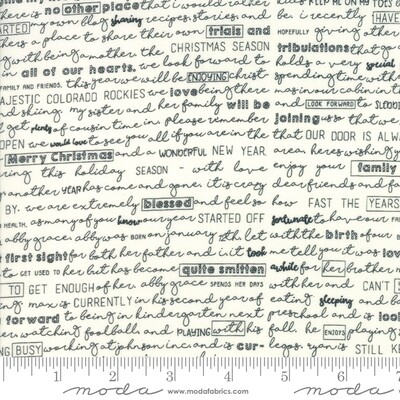 there is no other place that i would rather
STARTED my own blog sharing recipes, stories, and be. i recently HAVE
there's a place to share their own trials and HOPEFULLY giving other
with being another the CHRISTMAS SEASON tribulations that go
in all of our hearts. we look forward to holds a very special
FAMILY AND FRIENDS. this year we will be ENJOYING christ spending time with
MAJESTIC COLORADO ROCKIES we love being there mas in our cabin in t
and skiing. my sister and her family will be and LOOK FORWARD to SLEDD
get plenty of cousin time in. please remember joining us so that we
OPEN we would love to see you all if you are in the that OUR DOOR IS ALWA
Merry Christmas and a WONDERFUL NEW YEAR area. here's wishing y
ring this holiday SEASON - with love enjoy your family
another YEAR has come and gone. it is crazy dear friends and fa
BY. we are extremely blessed and feel so how FAST THE YEARS
HEALTH. as many of you know our year STARTED OFF fortunate to have our FA
abby grace. abby was BORN on january 10th. let with the birth of our
first sight for both her father and i. it took me tell you it was lov
to GET USED TO her but has become quite smitten awhile for her brother
TO GET ENOUGH of her. abby grace SPENDS HER DAYS with her and CAN'T
ing. max is CURRENTLY in his second year of eating, sleeping and
forward to being in kindergarten next preschool and is look
watching football, and PLAYING with his fall. he ENJOYS playing
BUSY working at johnson inc. and is cur- legos. ryan is STILL KE
1 2 3 4 5 6 7
moda www.modafabrics.com moda